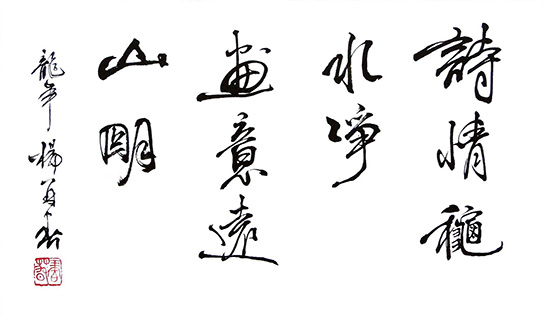 詩情龝
水凈
畫意遠
山明
龍年 楊